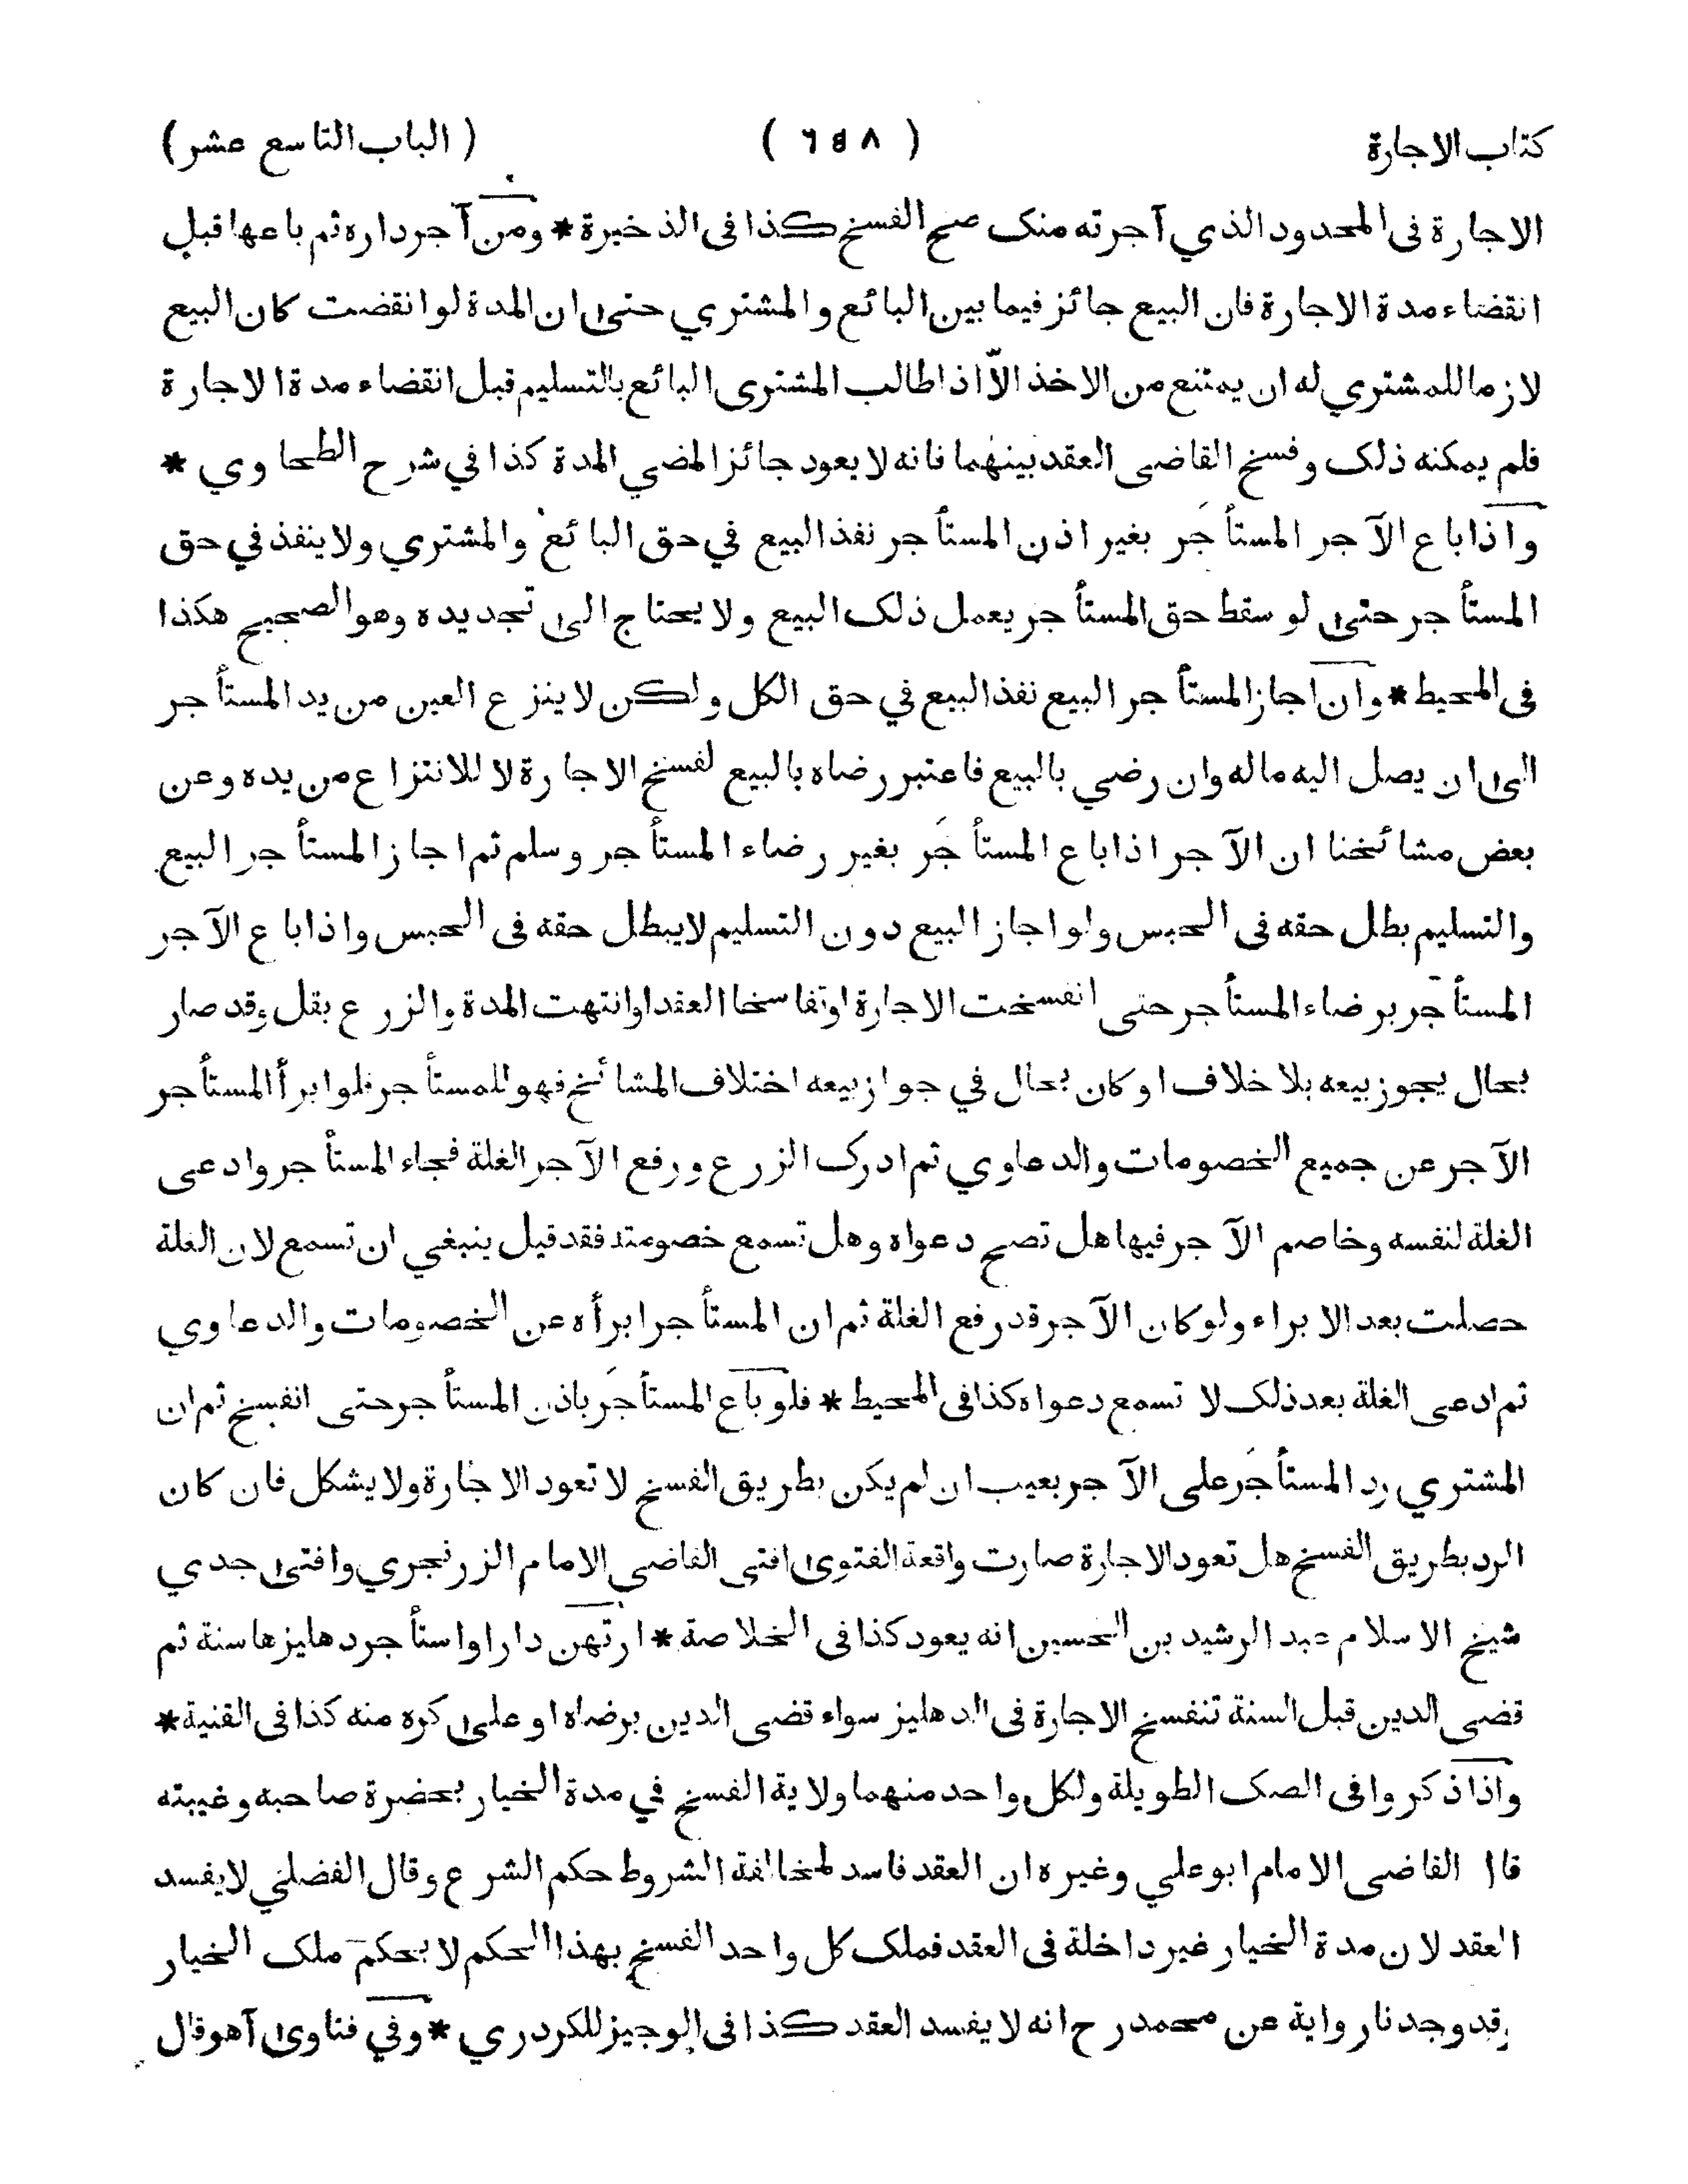 كتاب الاجارة ( ٦٤٨ ) ( الباب التاسع عشر )
الاجارة فى المحدود الذي آجرته منك صح الفسخ كذا فى الذخيرة * ومن آجر داره ثم باعها قبل
انقضاء مدة الاجارة فان البيع جائز فيما بين البائع والمشتري حتى ان المدة لو انقضت كان البيع
لازما للمشتري له ان يمتنع من الاخذ الاّ اذا طالب المشترى البائع بالتسليم قبل انقضاء مدة الاجارة
فلم يمكنه ذلك وفسخ القاضى العقد بينهما فانه لا يعود جائزا لمضي المدة كذا في شرح الطحاوي *
واذا باع الآجر المستأجَر بغير اذن المستأجر نفذ البيع في حق البائع والمشتري ولا ينفذ في حق
المستأجر حتى لو سقط حق المستأجر يعمل ذلك البيع ولا يحتاج الى تجديده وهو الصحيح هكذا
فى المحيط * وان اجاز المستأجر البيع نفذ البيع في حق الكل ولكن لا ينزع العين من يد المستأجر
الى ان يصل اليه ماله وان رضي بالبيع فاعتبر رضاه بالبيع لفسخ الاجارة لا للانتزاع من يده وعن
بعض مشائخنا ان الآجر اذا باع المستأجَر بغير رضاء المستأجر وسلم ثم اجاز المستأجر البيع
والتسليم بطل حقه فى الحبس ولو اجاز البيع دون التسليم لا يبطل حقه فى الحبس واذا باع الآجر
المستأجَر برضاء المستأجر حتى انفسخت الاجارة او تفاسخا العقد او انتهت المدة والزرع بقل وقد صار
بحال يجوز بيعه بلا خلاف او كان بحال في جواز بيعه اختلاف المشائخ فهو للمستأجر فلو ابرأ المستأجر
الآجر عن جميع الخصومات والدعاوي ثم ادرك الزرع ورفع الآجر الغلة فجاء المستأجر وادعى
الغلة لنفسه وخاصم الآجر فيها هل تصح دعواه وهل تسمع خصومته فقد قيل ينبغي ان تسمع لان الغلة
حصلت بعد الابراء ولو كان الآجر قد رفع الغلة ثم ان المستأجر ابرأه عن الخصومات والدعاوي
ثم ادعى الغلة بعد ذلك لا تسمع دعواه كذا فى المحيط * فلو باع المستأجَر باذن المستأجر حتى انفسخ ثم ان
المشتري رد المستأجَر على الآجر بعيب ان لم يكن بطريق الفسخ لا تعود الاجارة ولا يشكل فان كان
الرد بطريق الفسخ هل تعود الاجارة صارت واقعة الفتوى افتى القاضى الامام الزرنجري وافتى جدي
شيخ الاسلام عبد الرشيد بن الحسين انه يعود كذا فى الخلاصة * ارتهن دارا واستأجر دهليزها سنة ثم
قضى الدين قبل السنة تنفسخ الاجارة فى الدهليز سواء قضى الدين برضاه او على كره منه كذا فى القنية *
واذا ذكروا فى الصك الطويلة ولكل واحد منهما ولاية الفسخ في مدة الخيار بحضرة صاحبه وغيبته
قال القاضى الامام ابو علي وغيره ان العقد فاسد لمخالفة الشروط حكم الشرع وقال الفضلي لا يفسد
العقد لان مدة الخيار غير داخلة فى العقد فملك كل واحد الفسخ بهذا الحكم لا بحكم ملك الخيار
وقد وجدنا رواية عن محمد رح انه لا يفسد العقد كذا فى الوجيز للكردري * وفي فتاوى آهو قال